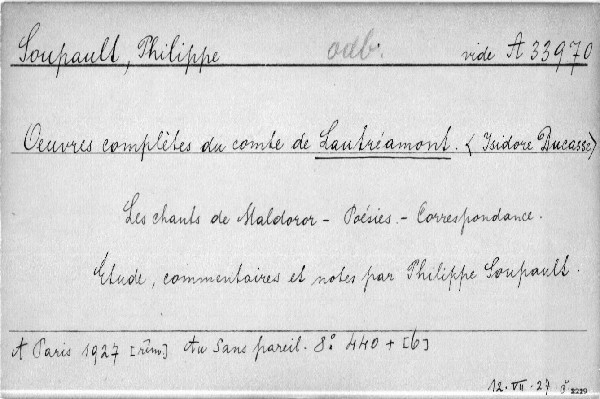 Soupault, Philippe odb. vide A 33970
Oeuvres complètes du comte de Lautréamont. (Isidore Ducasse)
Les chants de Maldoror - Poésies. - Correspondance.
Etude, commentaires et notes par Philippe Soupault.
A Paris 1927 [rům.] Au Sans pareil. 8° 440 + [6]
12. VII. 27